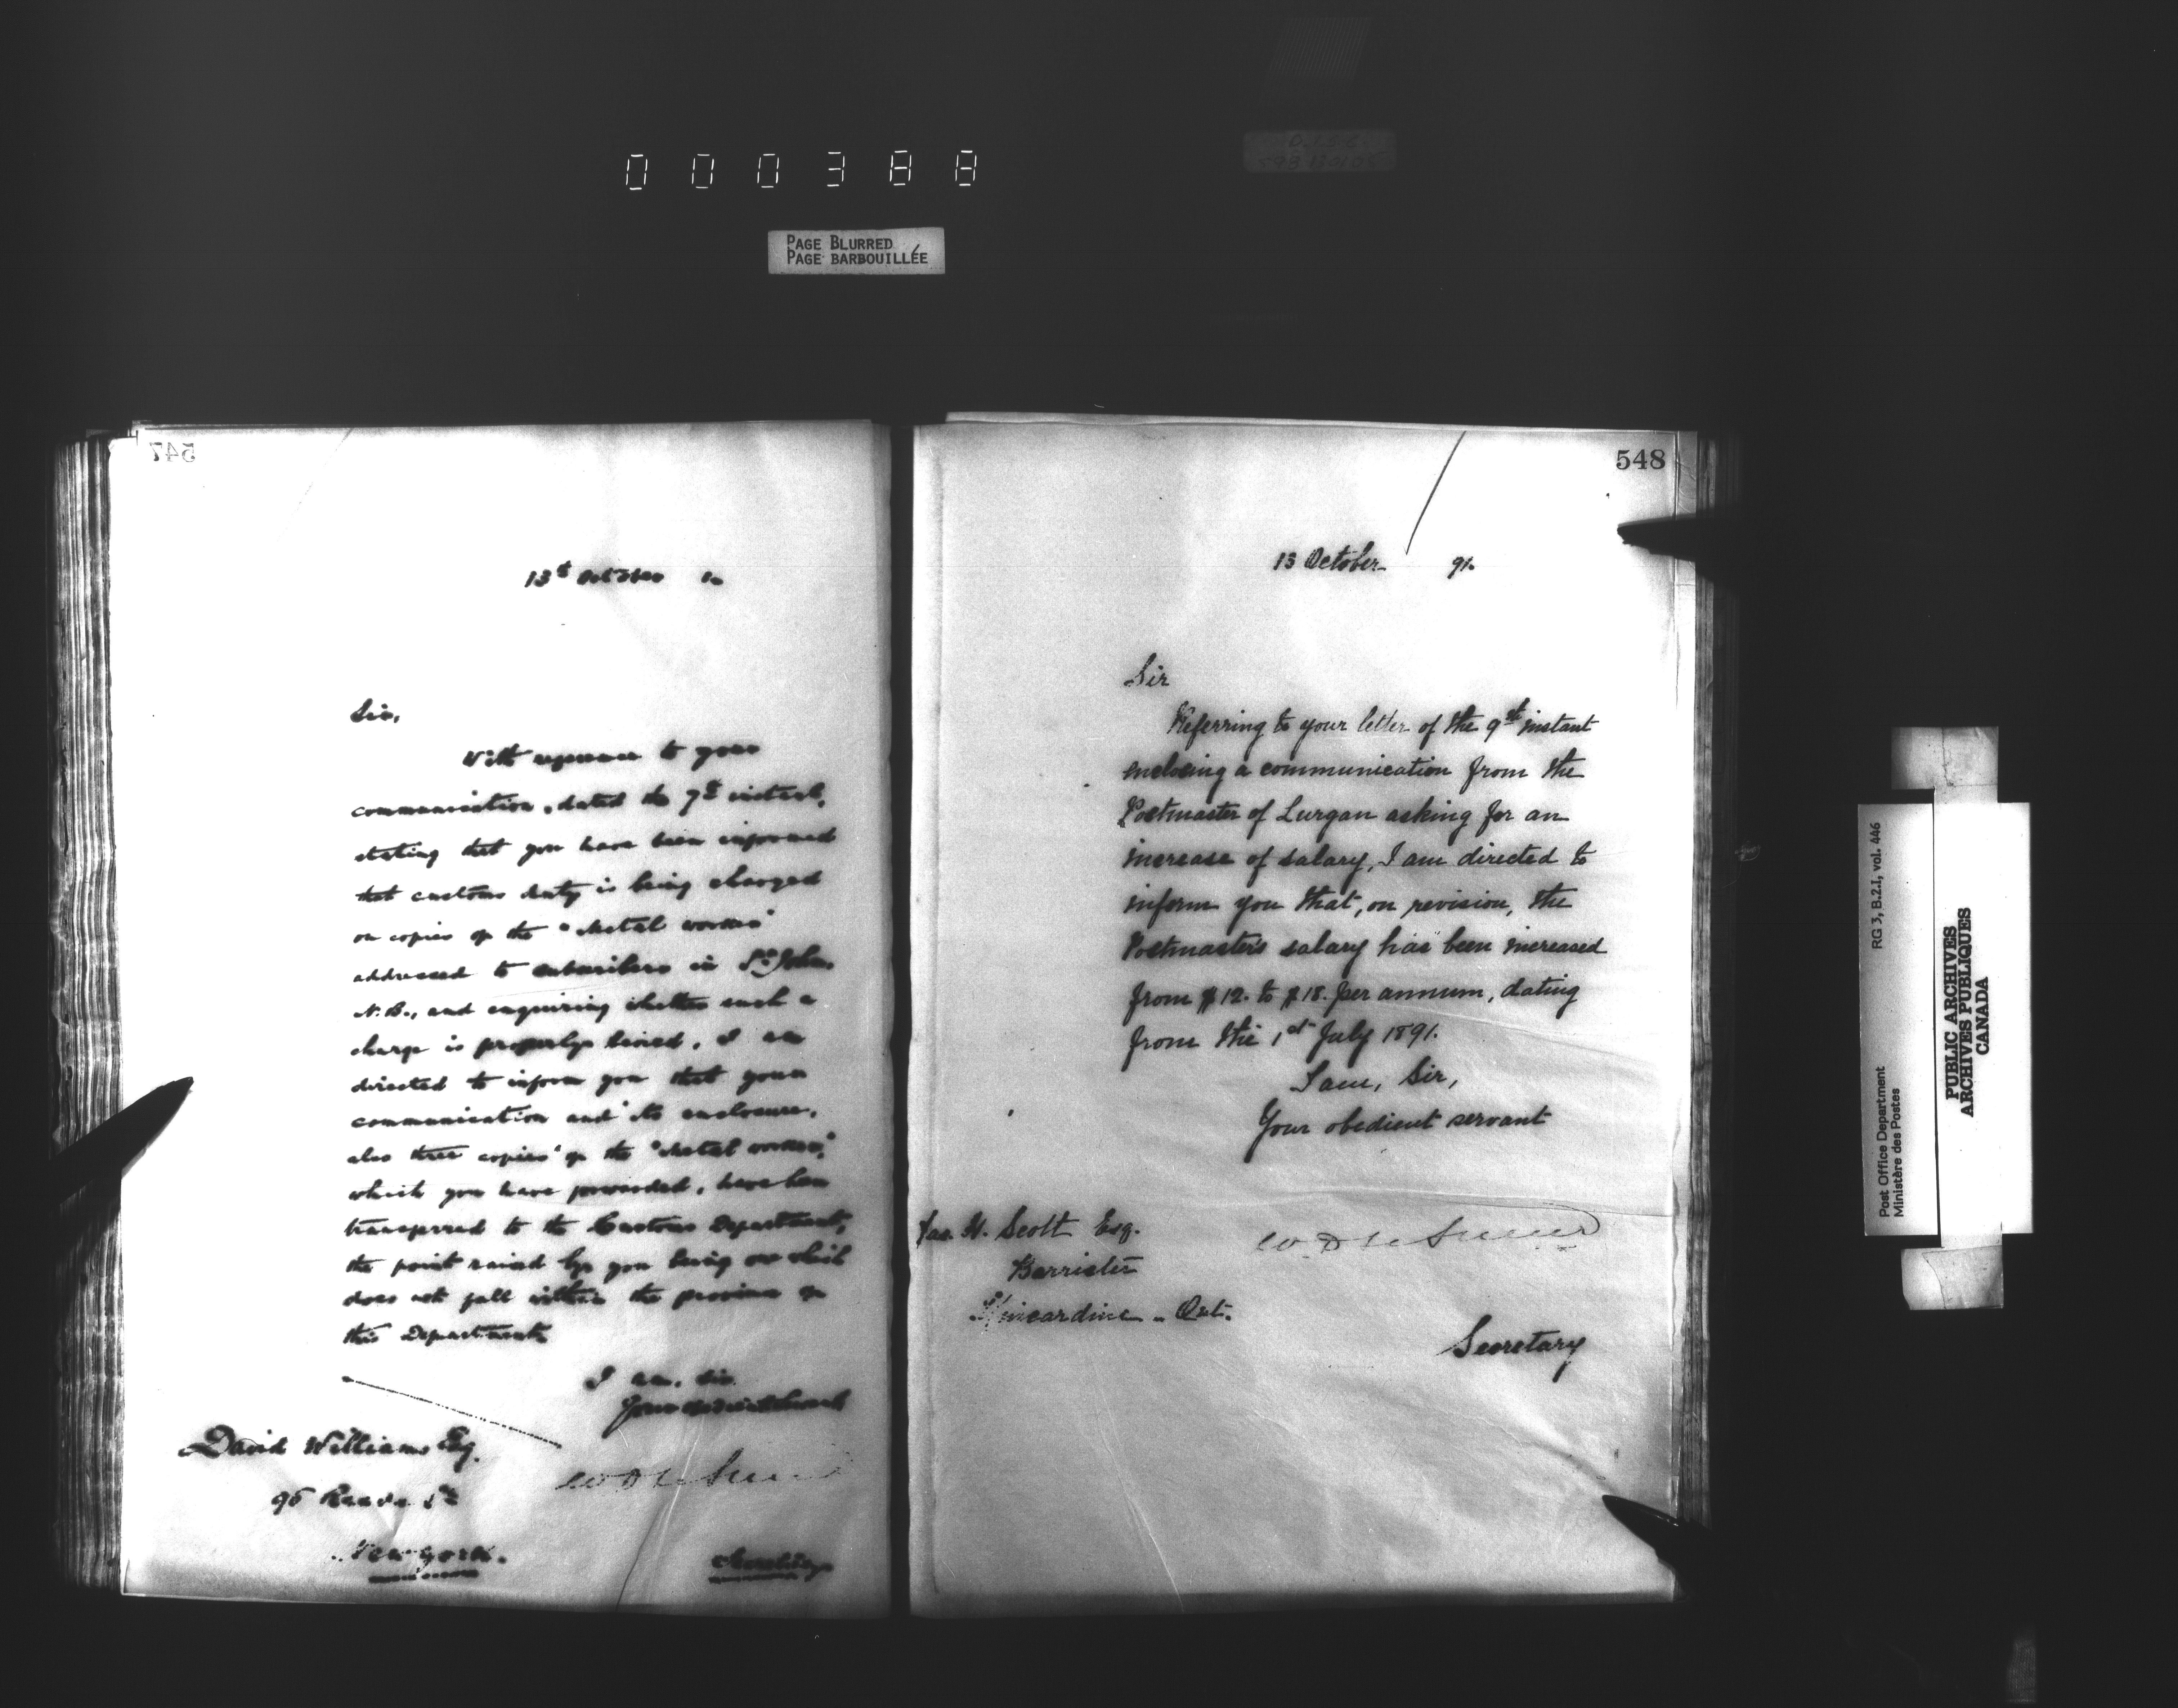 000388
PAGE BLURRED
PAGE BARBOUILLÉE
547
13th October
Sir,
With reference to your
communication, dated the 7th instant,
stating that you have been informed
that customs duty is being charged
on copies of the "Metal worker"
addressed to subscribers in St. John,
N.B., and enquiring whether such a
charge is properly levied, I am
directed to inform you that your
communication and its enclosure,
also three copies of the "Metal worker",
which you have forwarded, have been
transferred to the Customs Department,
the point raised by you being one which
does not fall within the province of
this Department.
I am, Sir,
Your obedient servant
David Williams Esq.
96 Reade St
New York.
Secretary
548
13 October 91.
Sir
Referring to your letter of the 9th instant
enclosing a communication from the
Postmaster of Lurgan asking for an
increase of salary, I am directed to
inform you that, on revision, the
Postmaster's salary has been increased
from $12. to $18. per annum, dating
from the 1st July 1891.
I am, Sir,
Your obedient servant
Jas. H. Scott Esq.
Barrister
Kincardine - Ont.
Secretary
Post Office Department RG 3, B.2.1, vol. 446
Ministère des Postes
PUBLIC ARCHIVES
ARCHIVES PUBLIQUES
CANADA